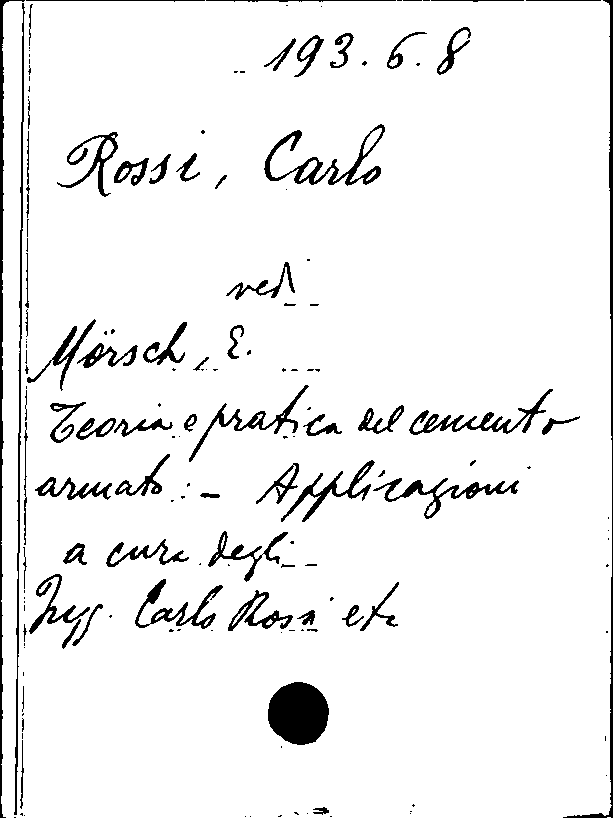 193.6.8
Rossi, Carlo
vedi
Mörsch, E.
Teoria e pratica del cemento
armato: - Applicazioni
a cura degli
Ingg. Carlo Rossi etc